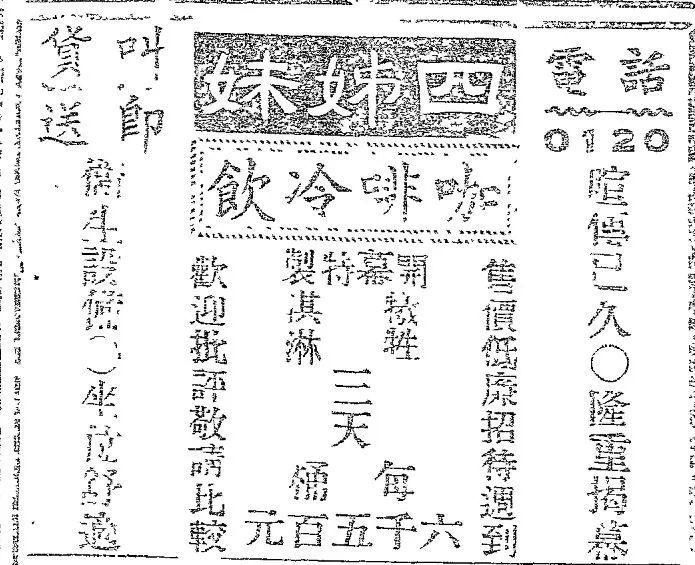 電話
0120
喧傳已久○隆重揭幕
四姊妹
咖啡冷飲
售價低廉招待週到
開幕特製
犧牲
淇淋
三天
每桶
六千五百元
歡迎批評敬請比較
叫貨
即送
衛生設備○坐位舒適